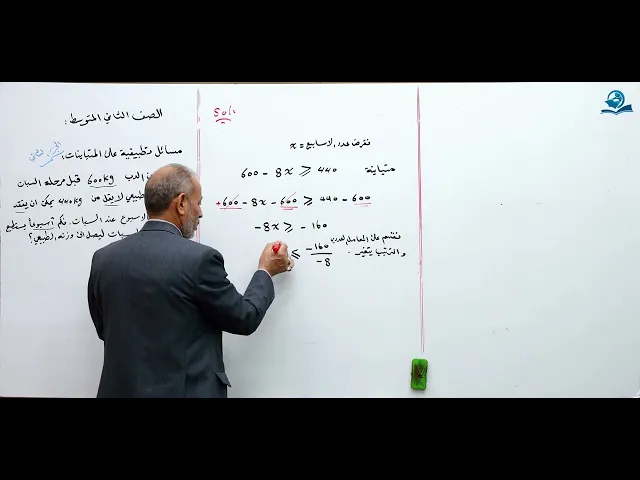 الصف الثاني المتوسط :
مسائل وتطبيقية على المتباينات :
الدب 600kg قبل مرحلة السبات
لا يقل عن 440kg يمكن ان يفقد
الاسبوع عند السبات. فكم أسبوعاً يستطيع
ليصل الى وزنه
Sol:
نفرض عدد الاسابيع = x
متباينة 600 - 8x ⩾ 440
+600 - 8x - 600 ⩾ 440 - 600
-8x ⩾ -160
نقسم على المعامل
والترتيب يتغير . ⩽ -160/-8